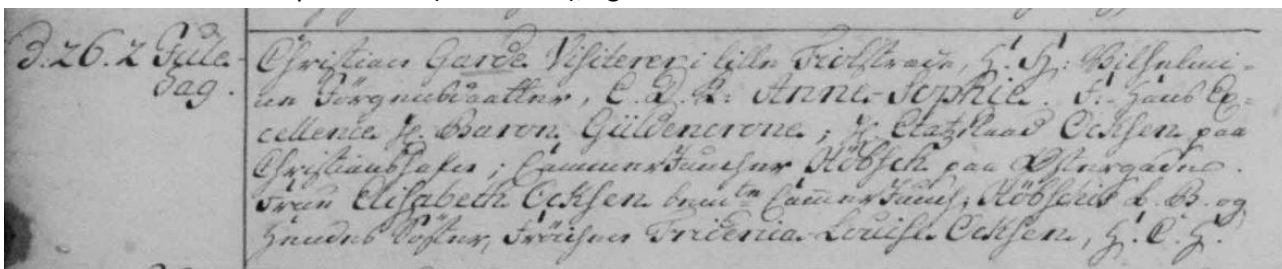 D. 26. 2 Jule- Christian Garde Visiterer i lille Fiolstræde, H. H: Wilhelmi-
dag. ne Jörgensdaatter, E. D. K: Anne-Sophie. F. Hans Ex-
cellence H. Baron Güldencrone; H. Etatz Raad Ocksen paa
Christianshafn; Cammer Juncher Höbsch paa Østergade.
Frue Elisabeth Ocksen bemte Cammer Junch; Höbsches L. B. og
Hendes Söster, Fröichen Fridenia Louise Ocksen, H. C. H.